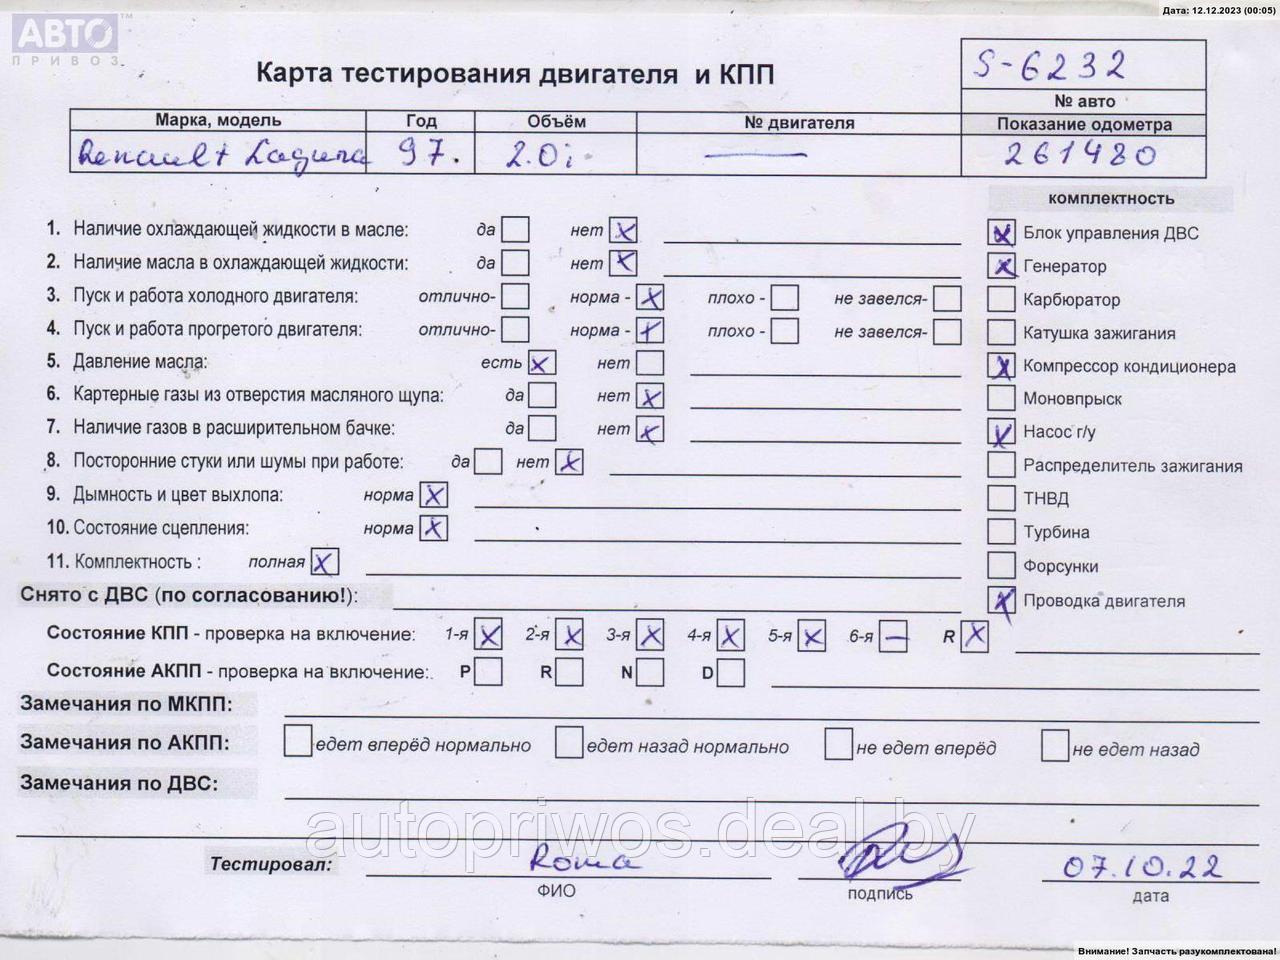 Дата: 12.12.2023 (00:05)
АВТО™
ПРИВОЗ
Карта тестирования двигателя и КПП
S-6232
№ авто
Марка, модель Год Объём № двигателя Показание одометра
Renault Laguna 97. 2.0i — 261480
комплектность
1. Наличие охлаждающей жидкости в масле: да нет x
Блок управления ДВС
2. Наличие масла в охлаждающей жидкости: да нет x
Генератор
3. Пуск и работа холодного двигателя: отлично- норма - x плохо - не завелся-
Карбюратор
4. Пуск и работа прогретого двигателя: отлично- норма - x плохо - не завелся-
Катушка зажигания
5. Давление масла: есть x нет
Компрессор кондиционера
6. Картерные газы из отверстия масляного щупа: да нет x
Моновпрыск
7. Наличие газов в расширительном бачке: да нет x
Насос г/у
8. Посторонние стуки или шумы при работе: да нет x
Распределитель зажигания
9. Дымность и цвет выхлопа: норма x
ТНВД
10. Состояние сцепления: норма x
Турбина
11. Комплектность : полная x
Форсунки
Снято с ДВС (по согласованию!):
Проводка двигателя
Состояние КПП - проверка на включение: 1-я x 2-я x 3-я x 4-я x 5-я x 6-я — R x
Состояние АКПП - проверка на включение:. P R N D
Замечания по МКПП:
Замечания по АКПП: едет вперёд нормально едет назад нормально не едет вперёд не едет назад
Замечания по ДВС:
autopriwos.deal.by
Тестировал: Roma 07.10.22
ФИО подпись дата
Внимание! Запчасть разукомплектована!